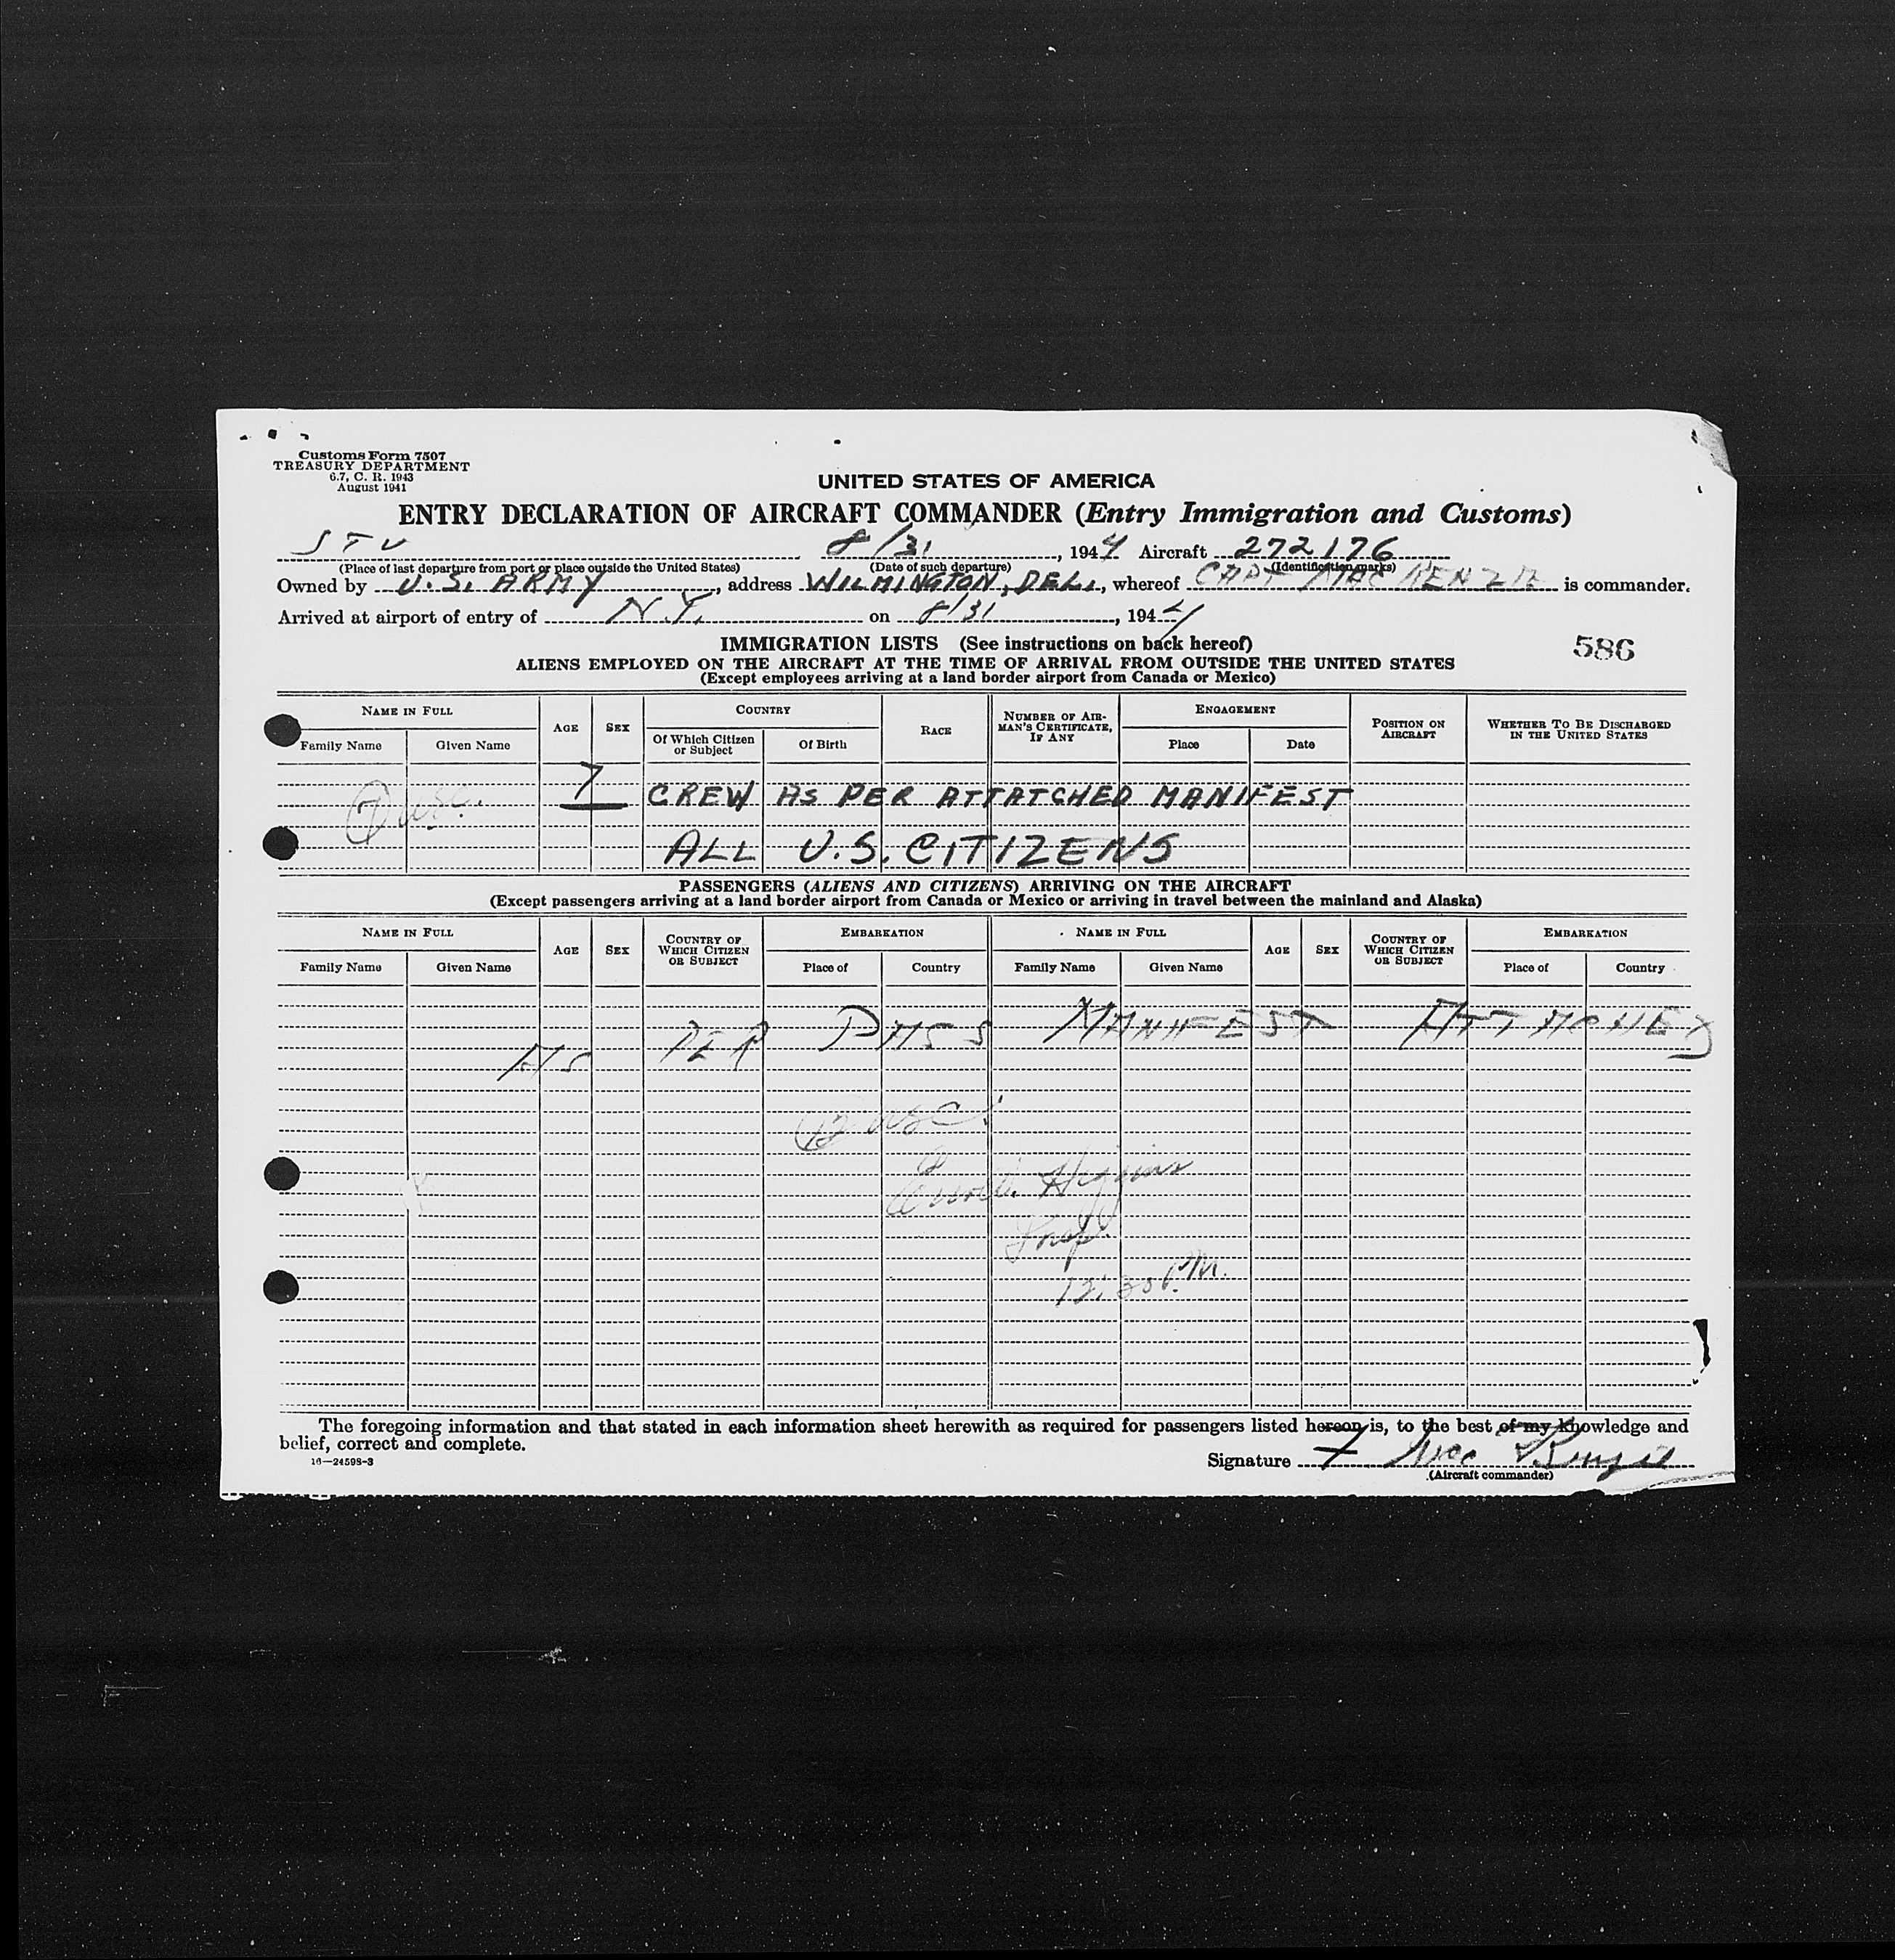 Customs Form 7507
TREASURY DEPARTMENT
6.7, C. R. 1943
August 1941
UNITED STATES OF AMERICA
ENTRY DECLARATION OF AIRCRAFT COMMANDER (Entry Immigration and Customs)
STV 8/31, 1944 Aircraft 272176
(Place of last departure from port or place outside the United States) (Date of such departure) (Identification marks)
Owned by U.S. ARMY, address WILMINGTON, DEL., whereof CAPT MAC KENZIE is commander.
Arrived at airport of entry of N.Y. on 8/31, 1944
IMMIGRATION LISTS (See instructions on back hereof)
586
ALIENS EMPLOYED ON THE AIRCRAFT AT THE TIME OF ARRIVAL FROM OUTSIDE THE UNITED STATES
(Except employees arriving at a land border airport from Canada or Mexico)
NAME IN FULL AGE SEX COUNTRY RACE NUMBER OF AIRMAN'S CERTIFICATE, IF ANY ENGAGEMENT POSITION ON AIRCRAFT WHETHER TO BE DISCHARGED IN THE UNITED STATES
Family Name Given Name Of Which Citizen or Subject Of Birth Place Date
7 usc. 7 CREW AS PER ATTATCHED MANIFEST
ALL U.S. CITIZENS
PASSENGERS (ALIENS AND CITIZENS) ARRIVING ON THE AIRCRAFT
(Except passengers arriving at a land border airport from Canada or Mexico or arriving in travel between the mainland and Alaska)
NAME IN FULL AGE SEX COUNTRY OF WHICH CITIZEN OR SUBJECT EMBARKATION NAME IN FULL AGE SEX COUNTRY OF WHICH CITIZEN OR SUBJECT EMBARKATION
Family Name Given Name Place of Country Family Name Given Name Place of Country
AS PER PASS MANIFEST ATTACHED
usc.
Higgins
Insp.
12:30 P.M.
The foregoing information and that stated in each information sheet herewith as required for passengers listed hereon is, to the best of my knowledge and
belief, correct and complete.
16—24598-3
Signature Mac Kenzie
(Aircraft commander)